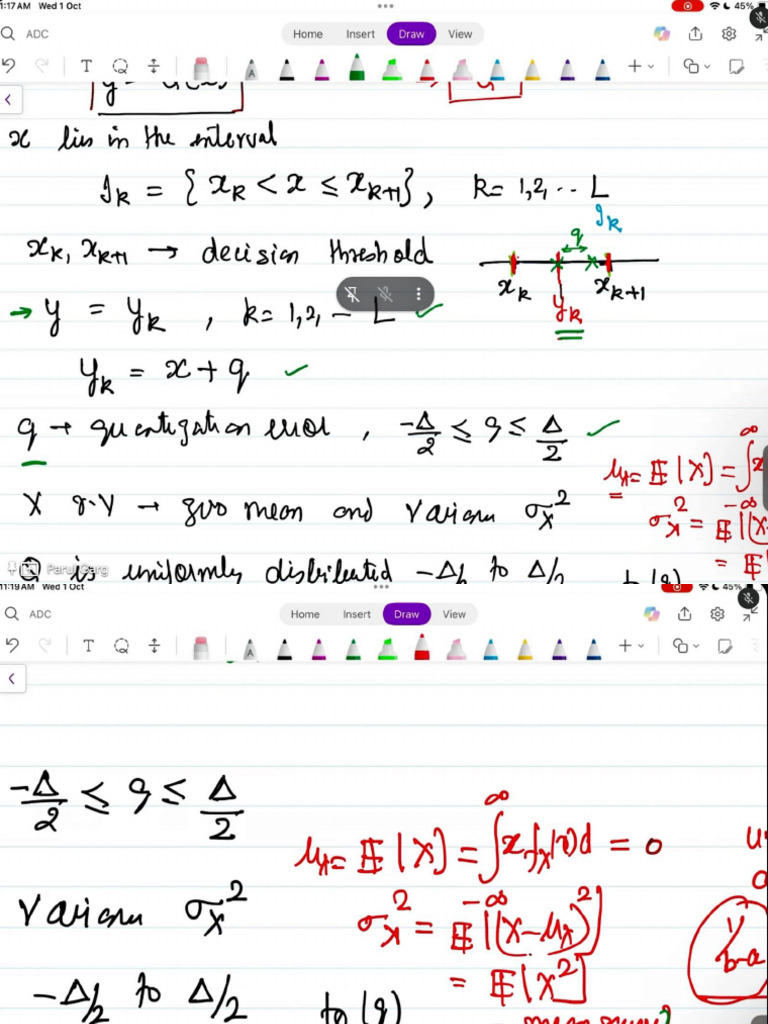 1:17AM Wed 1 Oct
45%
ADC
Home Insert Draw View
x lies in the interval
I_k = { x_k < x ≤ x_{k+1} }, k = 1,2, ·· L
I_k
q
x_k, x_{k+1} → decision threshold
x_k x_{k+1}
y_k
→ y = y_k , k = 1,2, – L ✓
y_k = x + q ✓
q → quantization error , -Δ/2 ≤ q ≤ Δ/2 ✓
μ_x = E[X] = ∫_{-∞}^{∞} x
X r.v → zero mean and variance σ_x^2
σ_x^2 = E[(X-
= E[
Q is uniformly distributed -Δ/2 to Δ/2
Parul Garg
11:19AM Wed 1 Oct
45%
ADC
Home Insert Draw View
-Δ/2 ≤ q ≤ Δ/2
μ_x = E[X] = ∫_{-∞}^{∞} x f_X(x)d = 0
variance σ_x^2
σ_x^2 = E[(X-μ_x)^2]
1/b-a
= E[X^2]
-Δ/2 to Δ/2